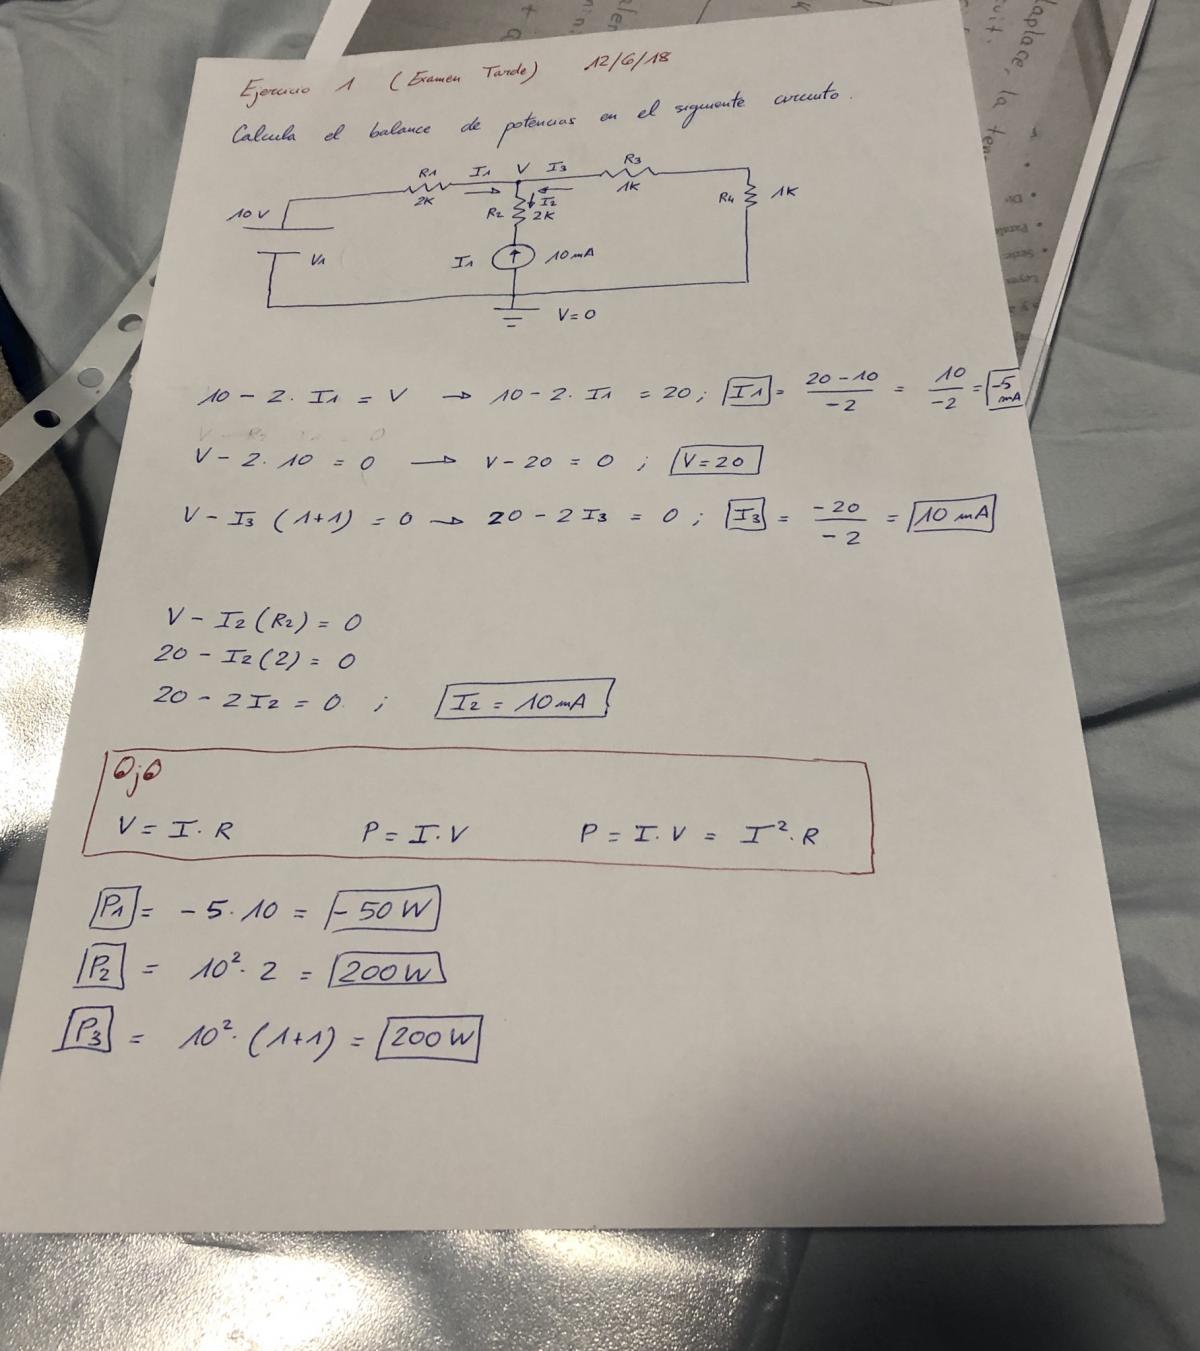 Ejercicio 1 (Examen Tarde) 12/6/18
Calcula el balance de potencias en el siguiente circuito.
R1 I1 V I3 R3
2K 1K
R4 1K
I2
R2 2K
10V
V1
I1 10mA
V=0
10 - 2. I1 = V → 10 - 2. I1 = 20; I1 = 20-10 / -2 = 10 / -2 = -5 mA
V - 2. 10 = 0 → V - 20 = 0 ; V=20
V - I3 (1+1) = 0 → 20 - 2I3 = 0 ; I3 = -20 / -2 = 10 mA
V - I2 (R2) = 0
20 - I2 (2) = 0
20 - 2I2 = 0. ; I2 = 10mA
OjO
V = I. R P = I. V P = I. V = I². R
P1 = -5. 10 = -50W
P2 = 10². 2 = 200W
P3 = 10². (1+1) = 200W